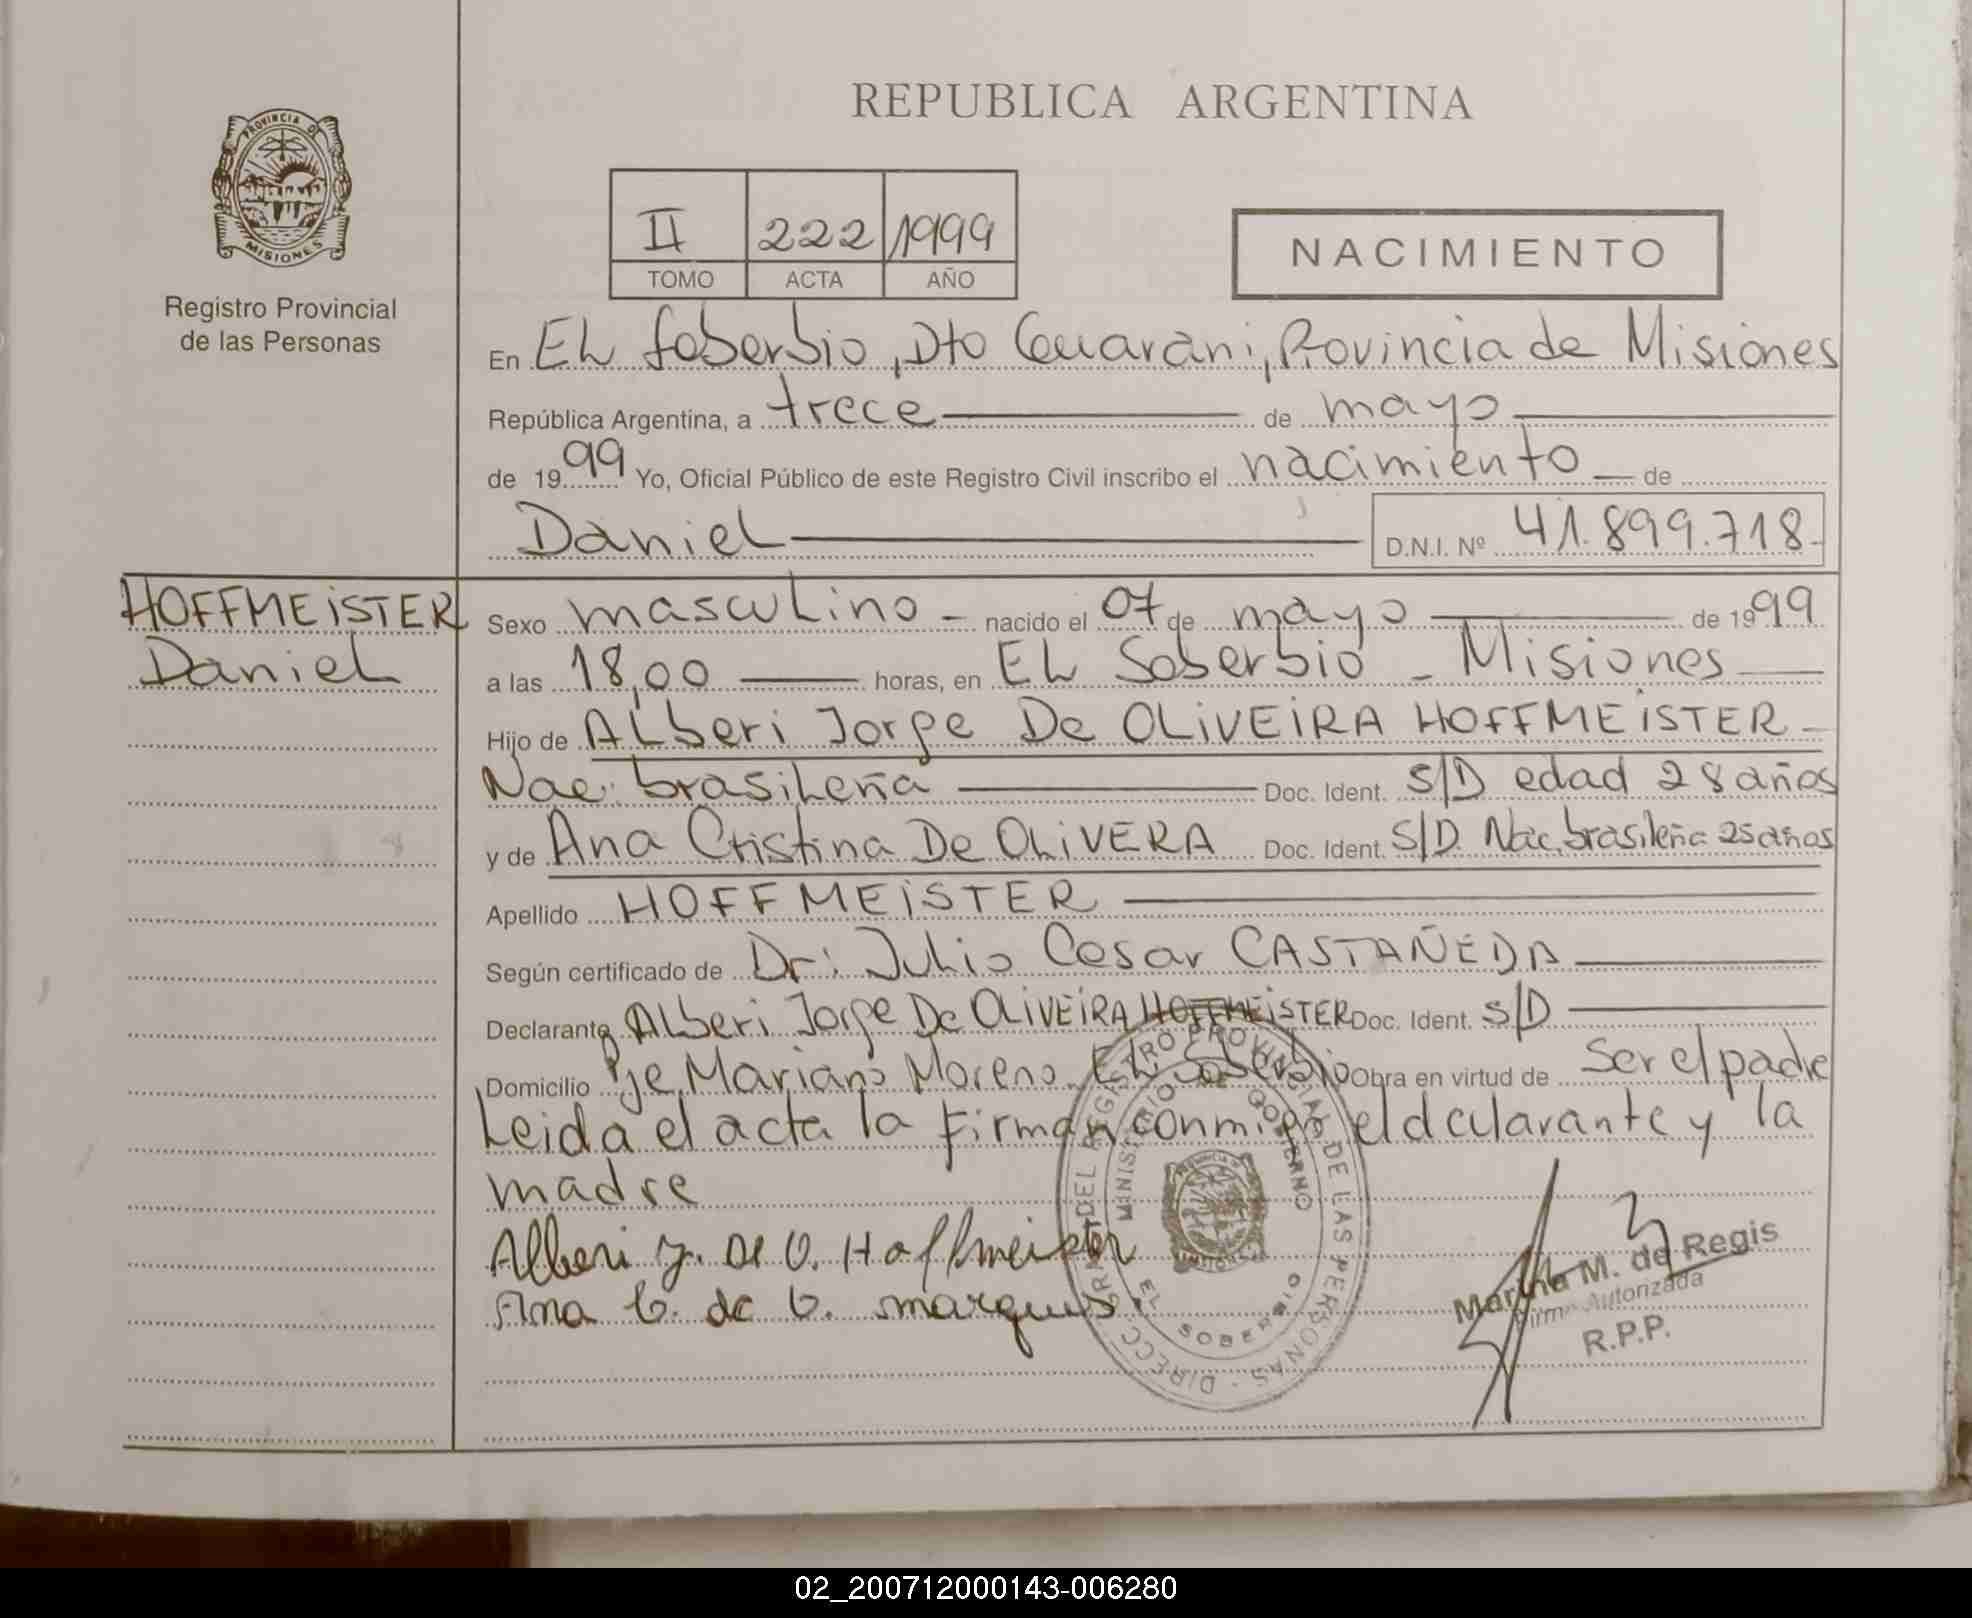 REPUBLICA ARGENTINA
PROVINCIA DE
MISIONES
Registro Provincial
de las Personas
II 222 1999
TOMO ACTA AÑO
NACIMIENTO
En EL Soberbio, Dto Guarani, Provincia de Misiones
República Argentina, a trece de mayo
de 1999 Yo, Oficial Público de este Registro Civil inscribo el nacimiento de
Daniel D.N.I. Nº 41.899.718
HOFFMEISTER
Daniel
Sexo masculino nacido el 07 de mayo de 1999
a las 18,00 horas, en EL Soberbio - Misiones
Hijo de ALberi Jorge De OLIVEIRA HOFFMEISTER
Nac. brasileña Doc. Ident. S/D edad 28 años
y de Ana Cristina De OLIVERA Doc. Ident. S/D. Nac. brasileña 25 años
Apellido HOFFMEISTER
Según certificado de Dr: Julio Cesar CASTAÑEDA
Declarante ALberi Jorge De OLIVEIRA HOFFMEISTER Doc. Ident. S/D
Domicilio Pje. Mariano Moreno. EL Soberbio Obra en virtud de Ser el padre
Leida el acta la firman conmigo el dclarante y la
madre
Alberi J. De O. Hoffmeister
Ana C. de O. marques.
DIRECC GRAL DEL REGISTRO PROVINCIAL DE LAS PERSONAS
MINISTERIO DE GOBIERNO
EL SOBERBIO
Martha M. de Regis
Firma Autorizada
R.P.P.
02_200712000143-006280